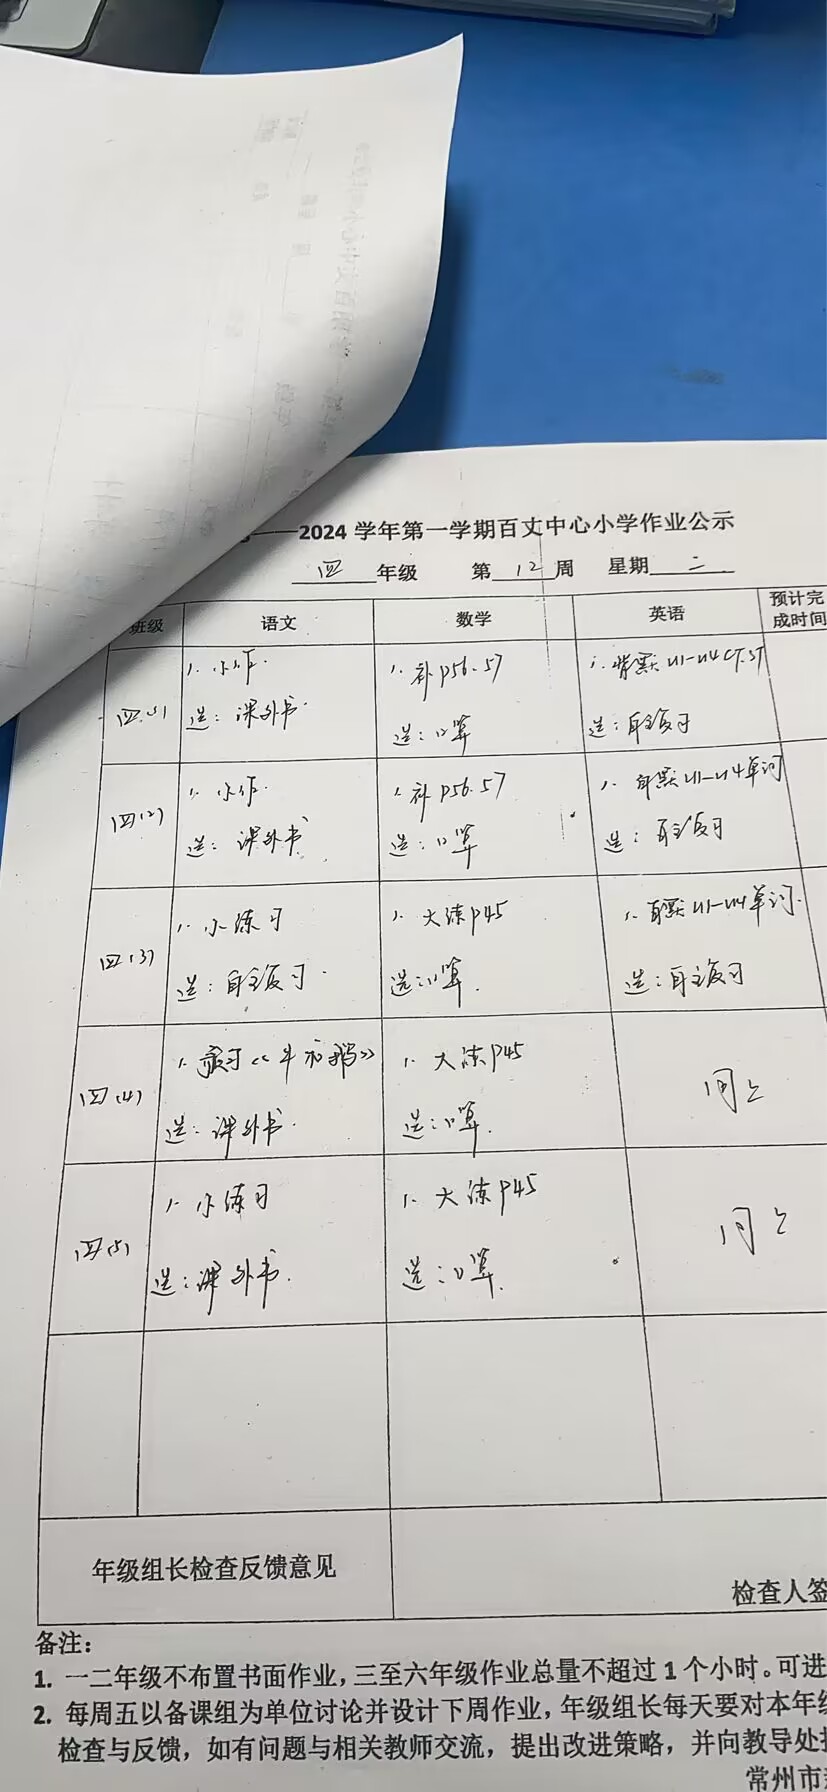 ——2024 学年第一学期百丈中心小学作业公示
四 年级 第 12 周 星期 二
班级 语文 数学 英语 预计完成时间
1. 小作. 1. 补P56.57 1. 背默U1-U4 CT.ST
四(1) 选: 课外书. 选: 口算 选: 自主复习
1. 小作. 1. 补P56.57 1. 自默U1-U4单词
四(2) 选: 课外书 选: 口算 选: 自主复习
1. 小练习 1. 大练P45 1. 自默U1-U4单词.
四(3) 选: 自主复习. 选: 口算. 选: 自主复习
1. 《牛和鹅》 1. 大练P45
四(4) 选: 课外书. 选: 口算. 同上
1. 小练习 1. 大练P45
四(5) 选: 课外书. 选: 口算. 同上
年级组长检查反馈意见
检查人签
备注:
1. 一二年级不布置书面作业,三至六年级作业总量不超过 1 个小时。可进
2. 每周五以备课组为单位讨论并设计下周作业,年级组长每天要对本年级
检查与反馈,如有问题与相关教师交流,提出改进策略,并向教导处
常州市